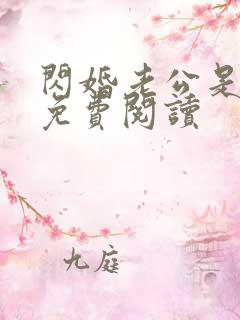 閃婚老公是
免費閱讀
九庭